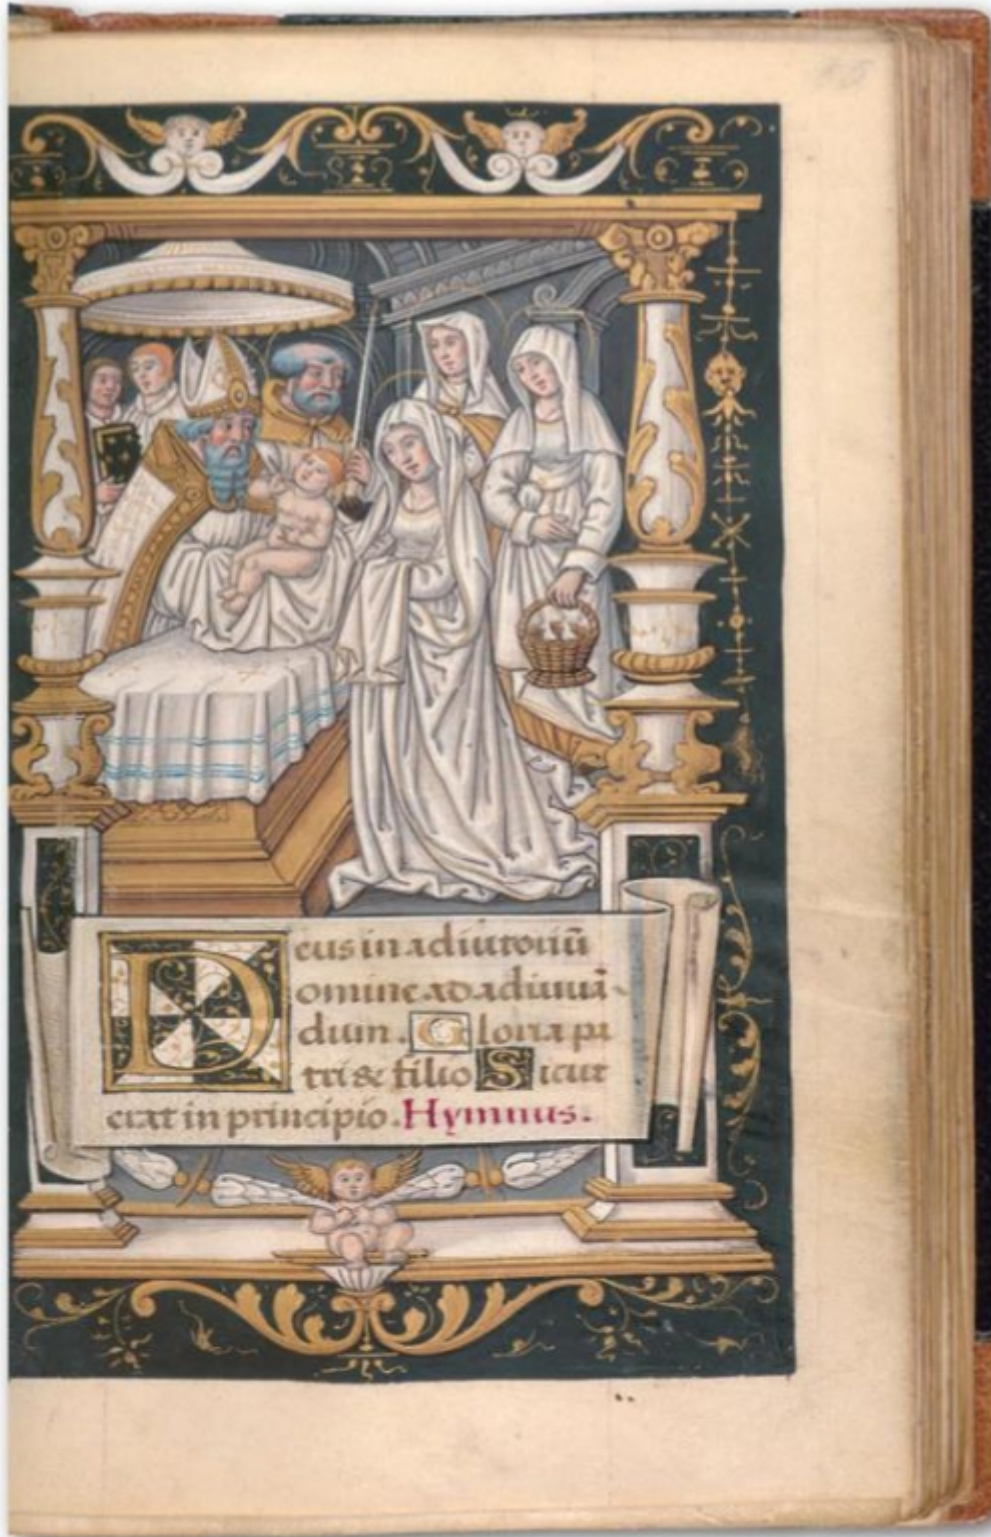 Deus in adiutoriũ
omine ad adiuuã-
dum. Gloria pa
tri & filio Sicut
erat in principio. Hymnus.